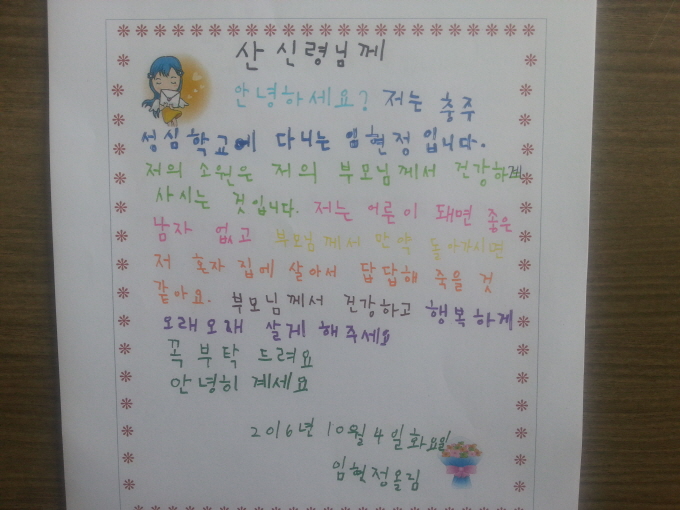 산 신령님께
안녕하세요? 저는 충주
성심학교에 다니는 임현정입니다.
저의 소원은 저의 부모님께서 건강하게
사시는 것입니다. 저는 어른이 돼면 좋은
남자 없고 부모님께서 만약 돌아가시면
저 혼자 집에 살아서 답답해 죽을 것
같아요. 부모님께서 건강하고 행복하게
오래오래 살게 해주세요
꼭 부탁 드려요
안녕히 계세요
2016년 10월 4일화요일
임현정올림